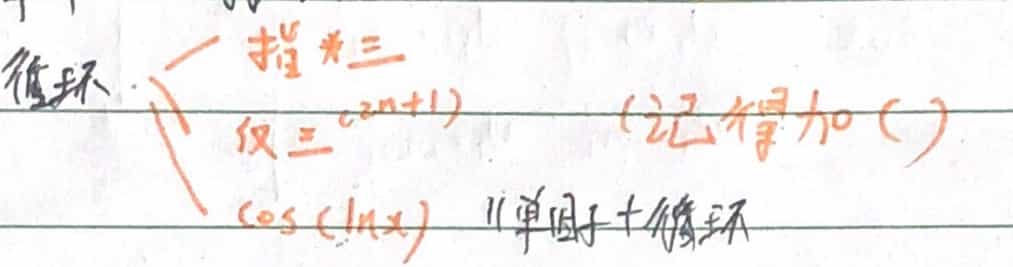 循环
指*三
仅三(2n+1) (记得加()
cos(lnx) 11单因子+循环